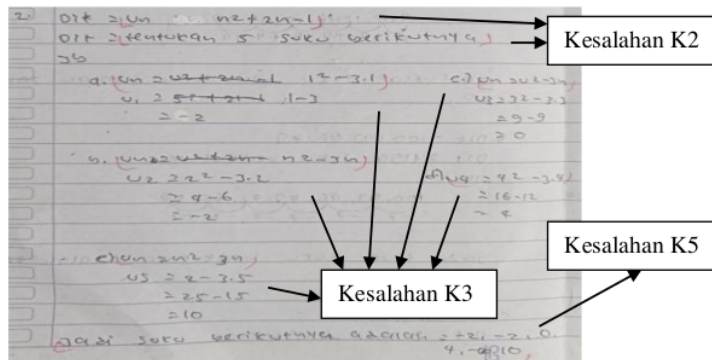 2. Dit = Un n2 + 2n - 1
Dit = tentukan 5 suku berikutnya
Jb
a. Un = 1² - 3.1
U1 = 1 - 3
= -2
Un = n2 - 3n
U2 = 2² - 3.2
= 4 - 6
= -2
c. Un = n2 - 3n
U3 = 32 - 3.3
= 9 - 9
= 0
d) U4 = 42 - 3.4
= 16 - 12
= 4
e) Un = n2 - 3n
U5 = 2 - 3.5
= 25 - 15
= 10
Jadi suku berikutnya adalah = -2, -2, 0,
4, 10,
Kesalahan K2
Kesalahan K3
Kesalahan K5